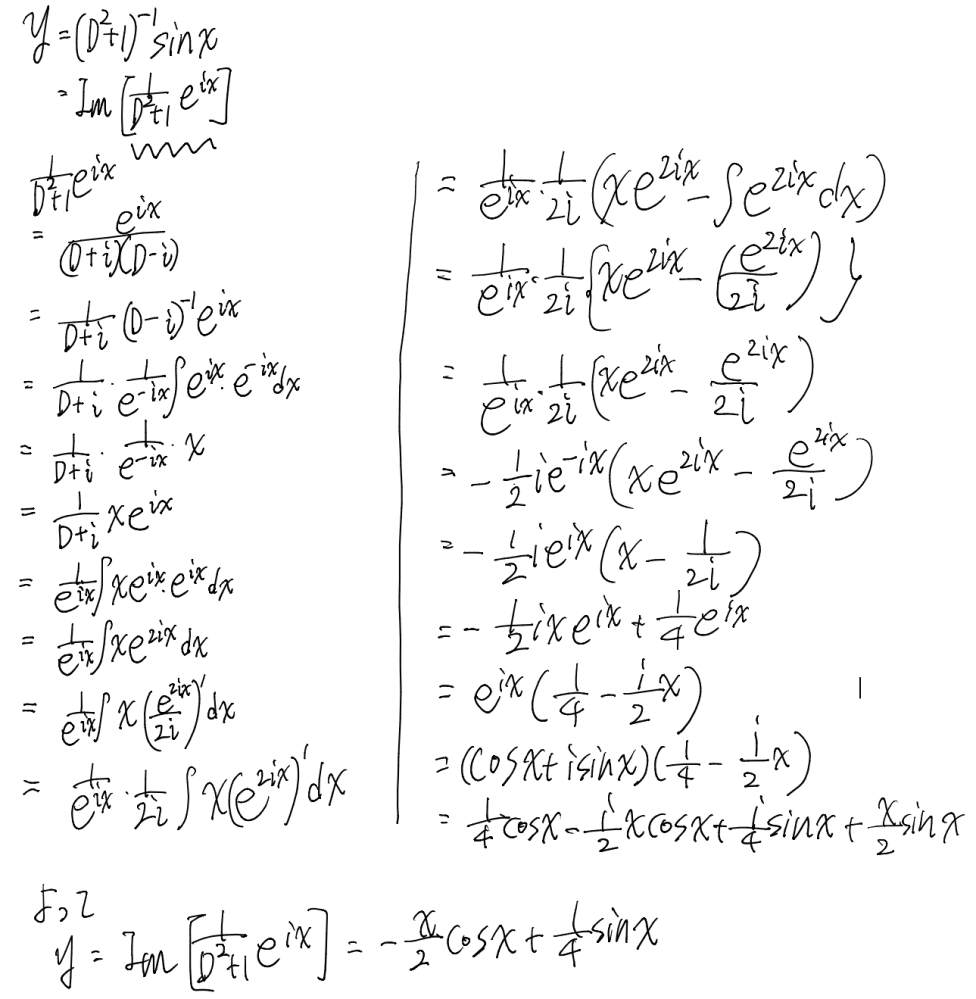 y=(D²+1)⁻¹sinx
=Im[1/(D²+1) e^{ix}]
1/(D²+1) e^{ix}
= e^{ix}/((D+i)(D-i))
= 1/(D+i) (D-i)⁻¹e^{ix}
= 1/(D+i)・1/e^{-ix}∫e^{ix}・e^{-ix}dx
= 1/(D+i)・1/e^{-ix}・x
= 1/(D+i) xe^{ix}
= 1/e^{ix}∫xe^{ix}・e^{ix}dx
= 1/e^{ix}∫xe^{2ix}dx
= 1/e^{ix}∫x(e^{2ix}/2i)'dx
= 1/e^{ix}・1/2i∫x(e^{2ix})'dx
= 1/e^{ix}・1/2i(xe^{2ix}-∫e^{2ix}dx)
= 1/e^{ix}・1/2i{xe^{2ix}-(e^{2ix}/2i)}
= 1/e^{ix}・1/2i(xe^{2ix}-e^{2ix}/2i)
= -1/2 ie^{-ix}(xe^{2ix}-e^{2ix}/2i)
= -1/2 ie^{ix}(x-1/2i)
= -1/2 ixe^{ix}+1/4 e^{ix}
= e^{ix}(1/4-i/2 x)
= (cosx+isinx)(1/4-i/2 x)
= 1/4 cosx-i/2 xcosx+i/4 sinx+x/2 sinx
よって
y=Im[1/(D²+1) e^{ix}]=-x/2 cosx+1/4 sinx